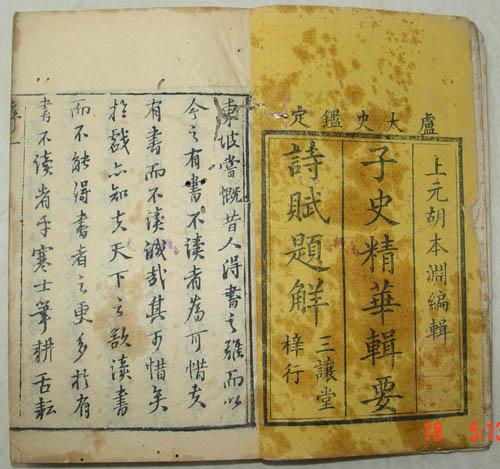 盧太史鑑定
上元胡本淵編輯
子史精華輯要
詩賦題解
三讓堂
梓行
序
東坡嘗慨昔人得書之難而以
今之有書不讀者為可惜夫
有書而不讀誠哉其可惜矣
於戲亦知夫天下之欲讀書
而不能得書者之更多於有
書不讀者乎寒士筆耕舌耘
18 5:13